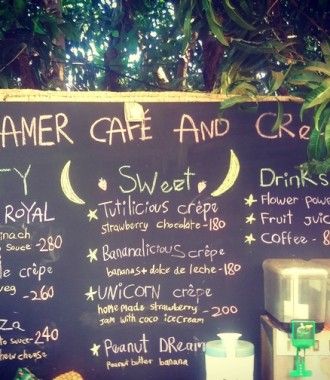 AMER CAFÉ AND CRe
TY
ROYAL
inach
sauce -280
le crêpe
veg -260
za
to sauce -240
how cheese
SWeet
Tutilicious crêpe
strawberry chocolate -180
Bananalicious crêpe
bananas + dolce de leche -180
UNiCORN crêpe
home made strawberry -200
jam with coco icecream
Peanut DReam
peanut butter banana
Drinks
Flower powe
Fruit juice
COFFee - 8